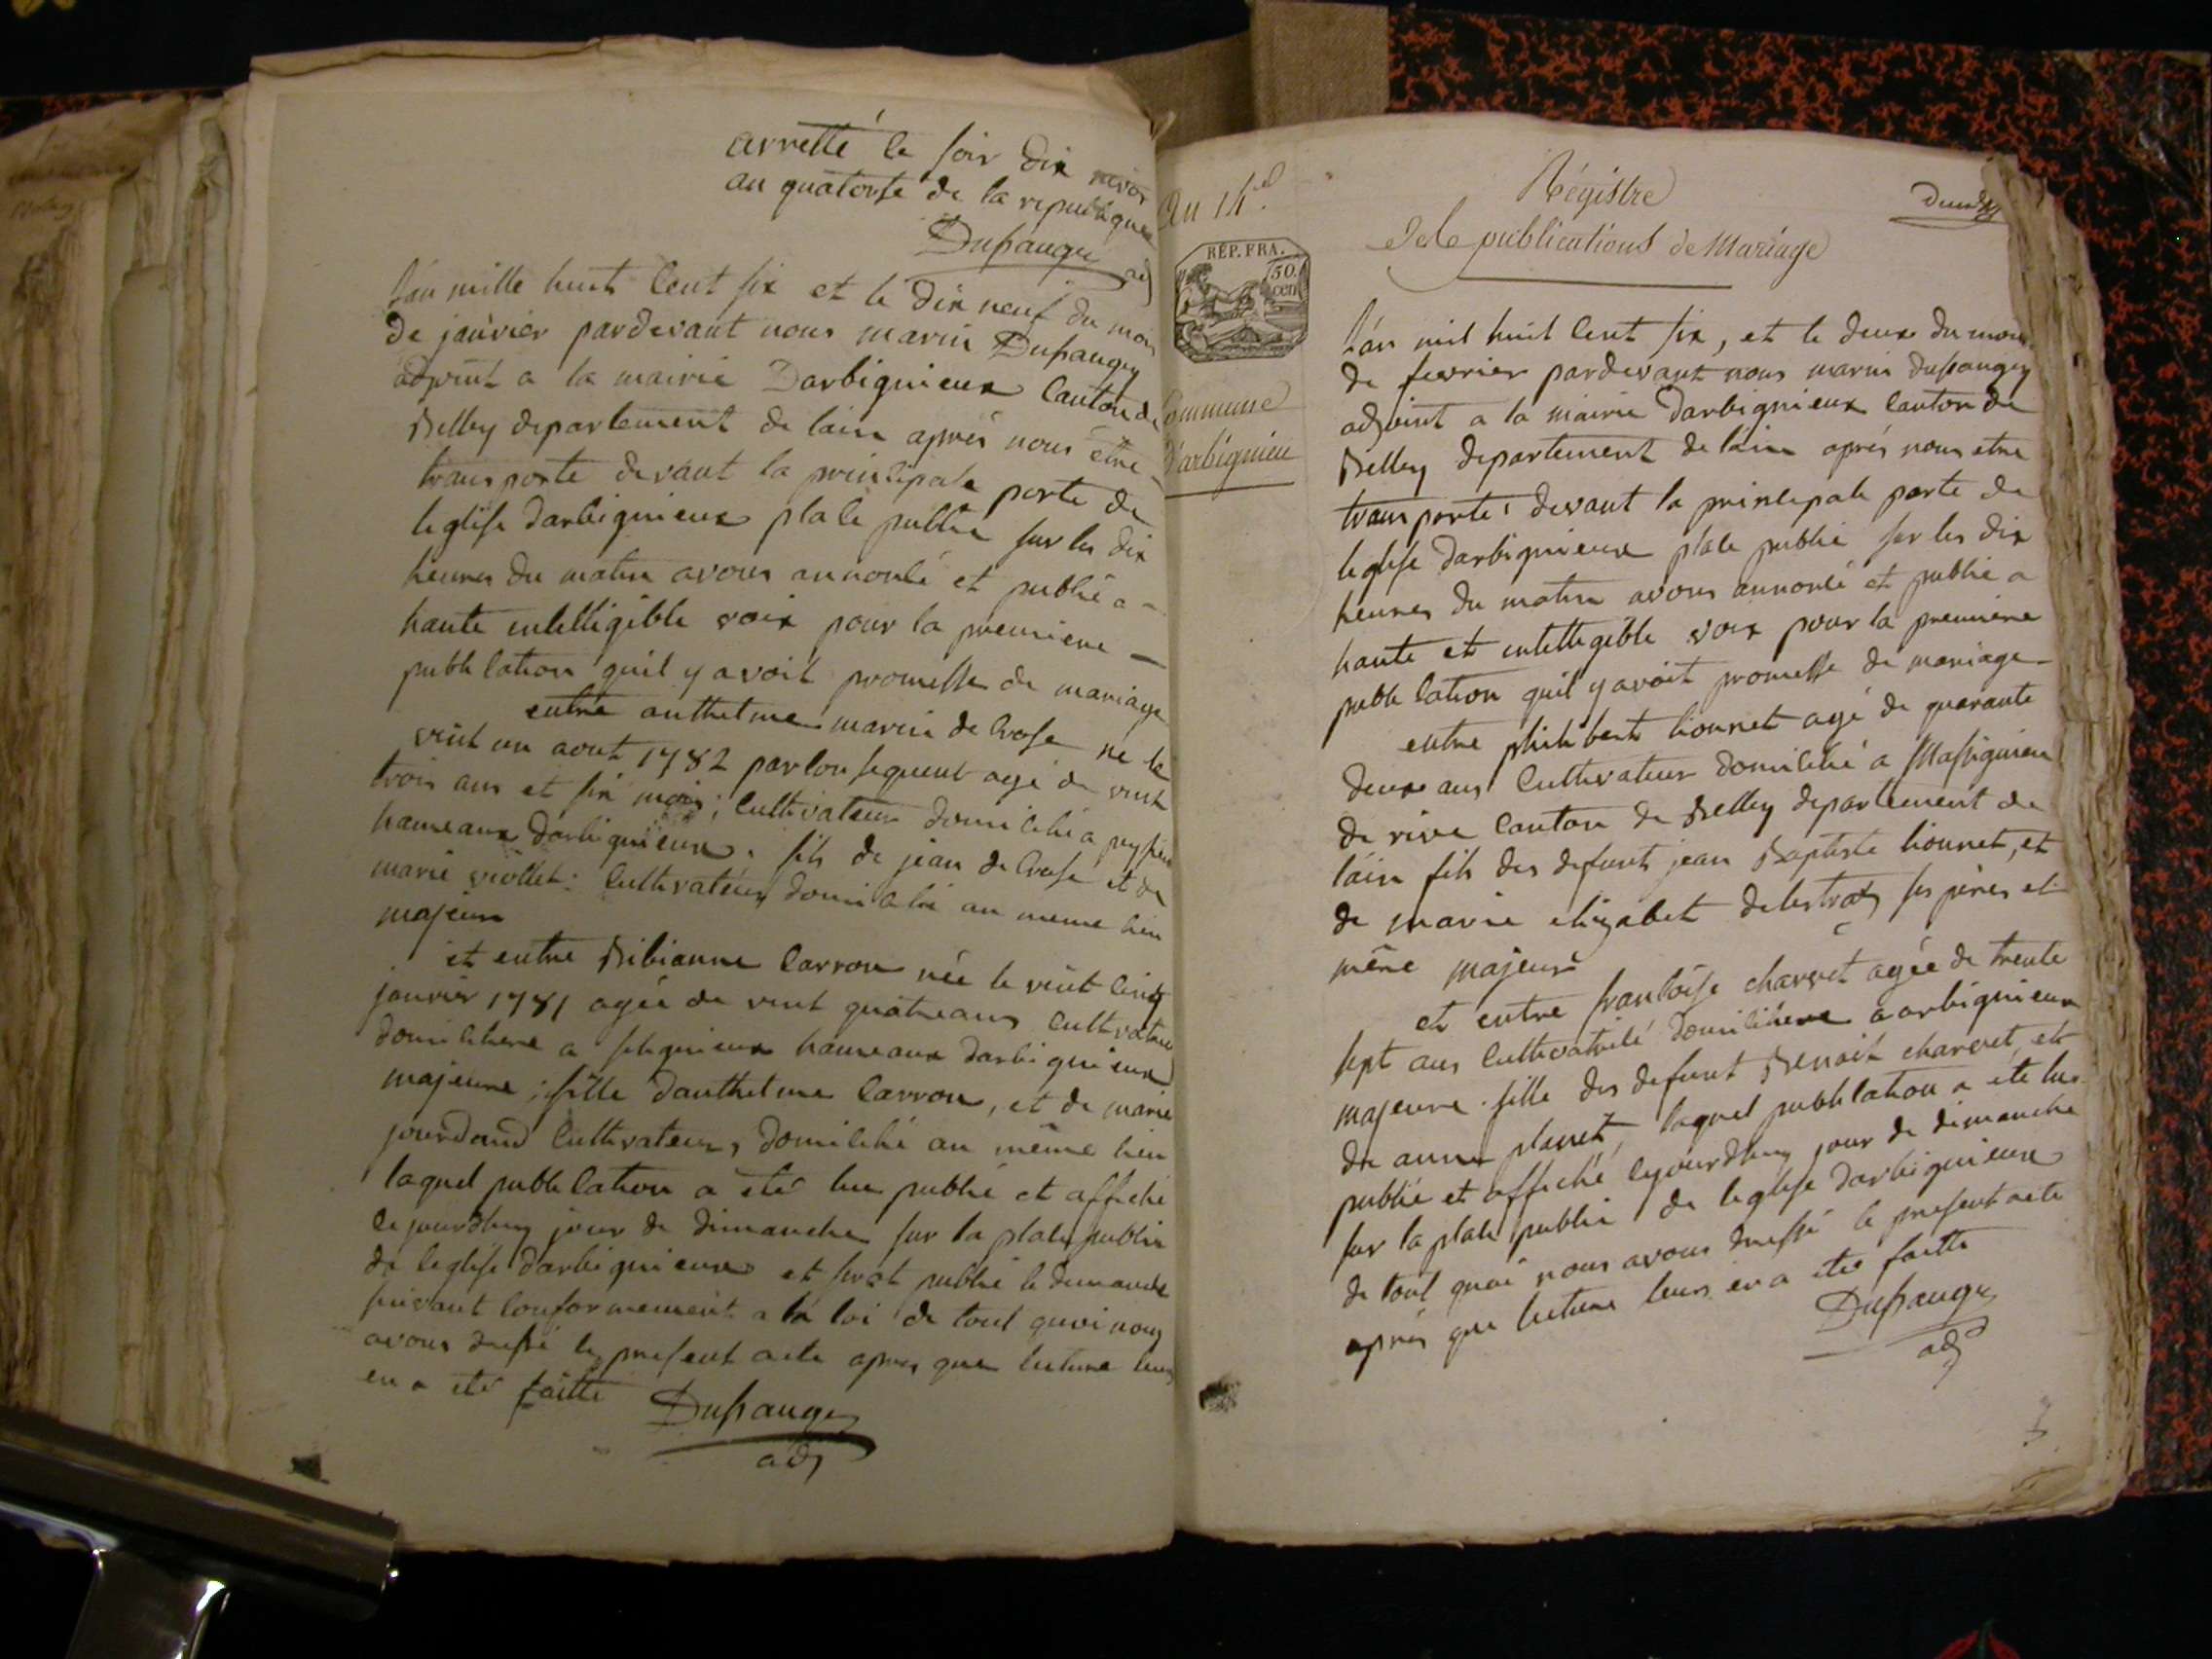 arretté le soir dix nivos
an quatorse de la republique
Dupaugey adj
L'an mille huit Cent six et le dix neuf du mois
de janvier pardevant nous marin Dupaugey
adjoint a la mairie Darbignieux Canton de
Belley departement de lain après nous être
transporte devant la principale porte de
leglise darbignieux place public sur les dix
heures du matin avons annoncé et publié a
haute intelligible voix pour la premiere
publication quil y avoit promesse de mariage
entre anthelme marin de Crose né le
vint un aout 1782 par consequent agé de vint
trois ans et six mois; Cultivateur domicilié a
hameaux d'arbignieux. fils de jean de Crose et de
marie viollet: Cultivateurs domicilié au meme lieu
majeur
et entre Bibianne Carron née le vint cinq
janvier 1781 agée de vint quatre ans Cultivatrice
domiciliere a hameaux darbignieux
majeure; fille d'anthelme Carron, et de marie
jourdand Cultivateurs, domicilié au même lieu
laquel publication a été lue publié et affiché
cejourdhuy jour de dimanche sur la place public
de leglise darbignieux et serat publié le dimanche
suivant Conformement a la loi de tout quoi nous
avons dressé le present acte apres que lecture leurs
en a été faitte
Dupaugey
adj
An 14.el
RÉP. FRA.
50. cen
Commune
d'arbignieu
Régistre
de publications de Mariage
L'an mil huit Cent six, et le deux du mois
de fevrier pardevant nous marin dupaugey
adjoint a la mairie darbignieux Canton de
Belley departement de l'ain aprés nous etre
transporté devant la principale porte de
leglise darbignieux place public sur les dix
heures du matin avons annoncé et publié a
haute et intelligible voix pour la premiere
publication quil y avoit promesse de mariage
entre philibert lionnet agé de quarante
deux ans Cultivateur domicilié a Massignieu
de rive Canton de Belley departement de
l'ain fils des defunt jean Baptiste lionnet, et
de marie elizabet ses pères et
mère majeur
et entre francoise charvet agée de trente
sept ans Cultivatrice domiciliere a arbignieux
majeure. fille des defunt Benoit charvet, et
de anne planet, laquel publication a été lue
publié et affiché cejourdhuy jour de dimanche
sur la place public de leglise darbignieux
de tout quoi nous avons dressé le present acte
aprés que lecture leurs en a été faitte
Dupaugey
adj